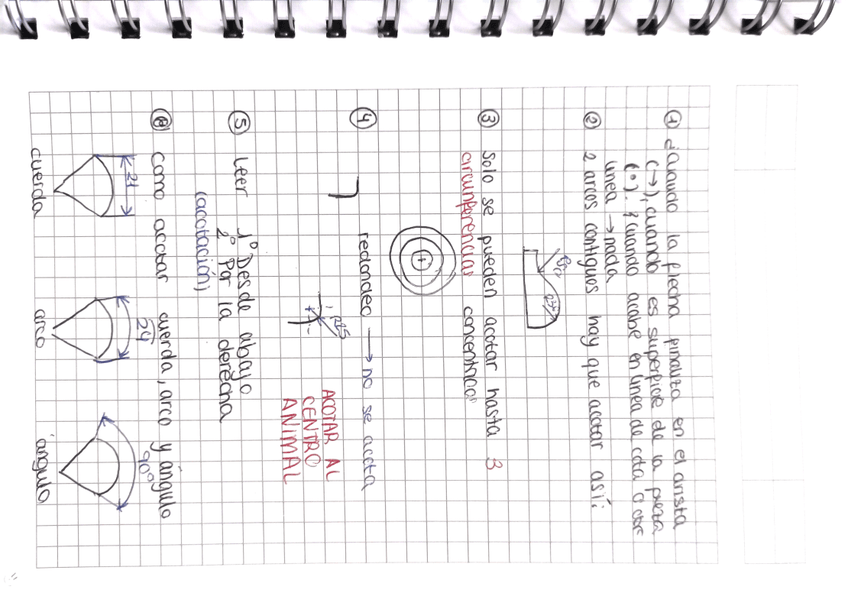 ① ¿Cuando la flecha finaliza en el arista
(→), cuando es superficie de la pieza
(•). ¿Cuando acabe en linea de cota o otra
linea → nada
② 2 arcos contiguos hay que acotar así:
③ Solo se pueden acotar hasta 3
circunferencias concentricas
④ redondeo → no se acota
R25
ACOTAR AL
CENTRO
ANIMAL
⑤ Leer 1º Desde abajo
2º Por la derecha
(acotación)
⑥ Como acotar cuerda, arco y ángulo
21
24
90º
cuerda
arco
ángulo